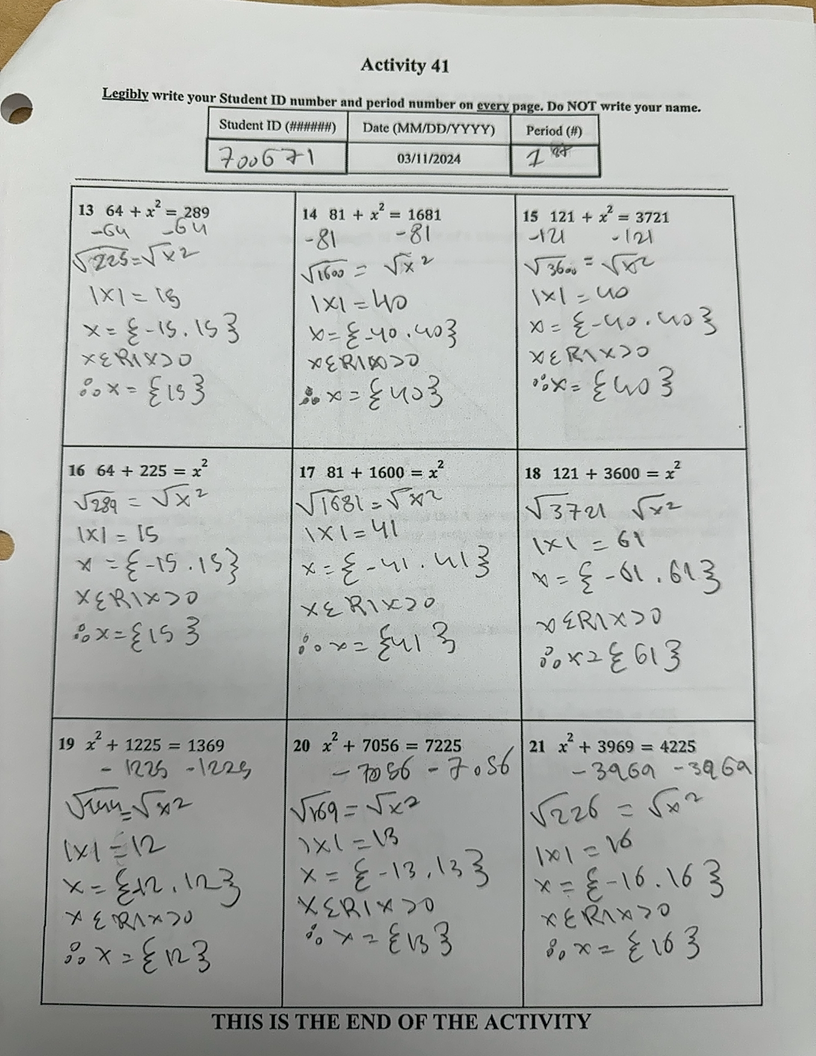 Activity 41
Legibly write your Student ID number and period number on every page. Do NOT write your name.
Student ID (######) Date (MM/DD/YYYY) Period (#)
700671 03/11/2024
13 64 + x² = 289
-64 -64
√225 = √x²
|x| = 15
x = {-15, 15}
xεR|x>0
∴ x = {15}
14 81 + x² = 1681
-81 -81
√1600 = √x²
|x| = 40
x = {-40, 40}
xεR|x>0
∴ x = {40}
15 121 + x² = 3721
-121 -121
√3600 = √x²
|x| = 40
x = {-40, 40}
xεR|x>0
∴ x = {40}
16 64 + 225 = x²
√289 = √x²
|x| = 15
x = {-15, 15}
xεR|x>0
∴ x = {15}
17 81 + 1600 = x²
√1681 = √x²
|x| = 41
x = {-41, 41}
xεR|x>0
∴ x = {41}
18 121 + 3600 = x²
√3721 √x²
|x| = 61
x = {-61, 61}
xεR|x>0
∴ x = {61}
19 x² + 1225 = 1369
-1225 -1225
√144 = √x²
|x| = 12
x = {-12, 12}
xεR|x>0
∴ x = {12}
20 x² + 7056 = 7225
-7056 -7056
√169 = √x²
|x| = 13
x = {-13, 13}
xεR|x>0
∴ x = {13}
21 x² + 3969 = 4225
-3969 -3969
√226 = √x²
|x| = 16
x = {-16, 16}
xεR|x>0
∴ x = {16}
THIS IS THE END OF THE ACTIVITY